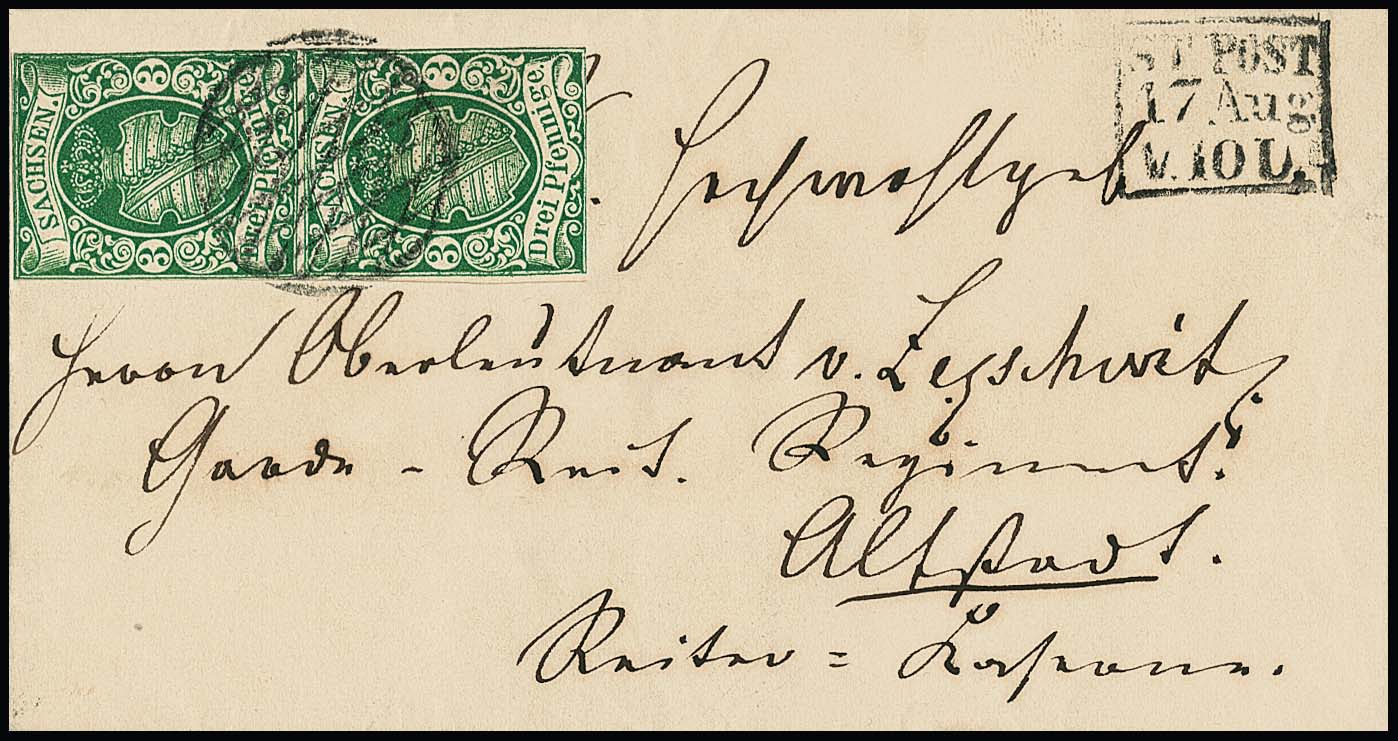 3 3
SACHSEN. Drei Pfennige. SACHSEN. Drei Pfennige.
3 3
ST. POST
17 Aug
V. 10 U.
Hochwohlgeb
Herrn Oberleutnant v. Zezschwitz
Garde - Reit. Regiment.
Altstadt.
Reiter = Kaserne.